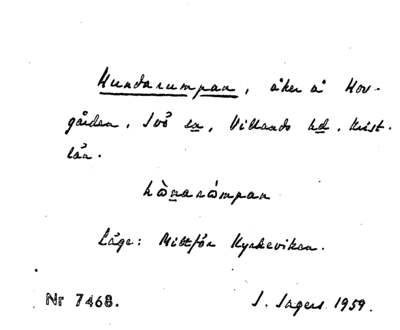 Hundarumpan, åker å Hov-
gården. Ivö sn, Villands hd. Krist.
län.
hὼnaròmpan
Läge: Mittför Kyrkeviken.
Nr 7468. I. Ingers 1959.